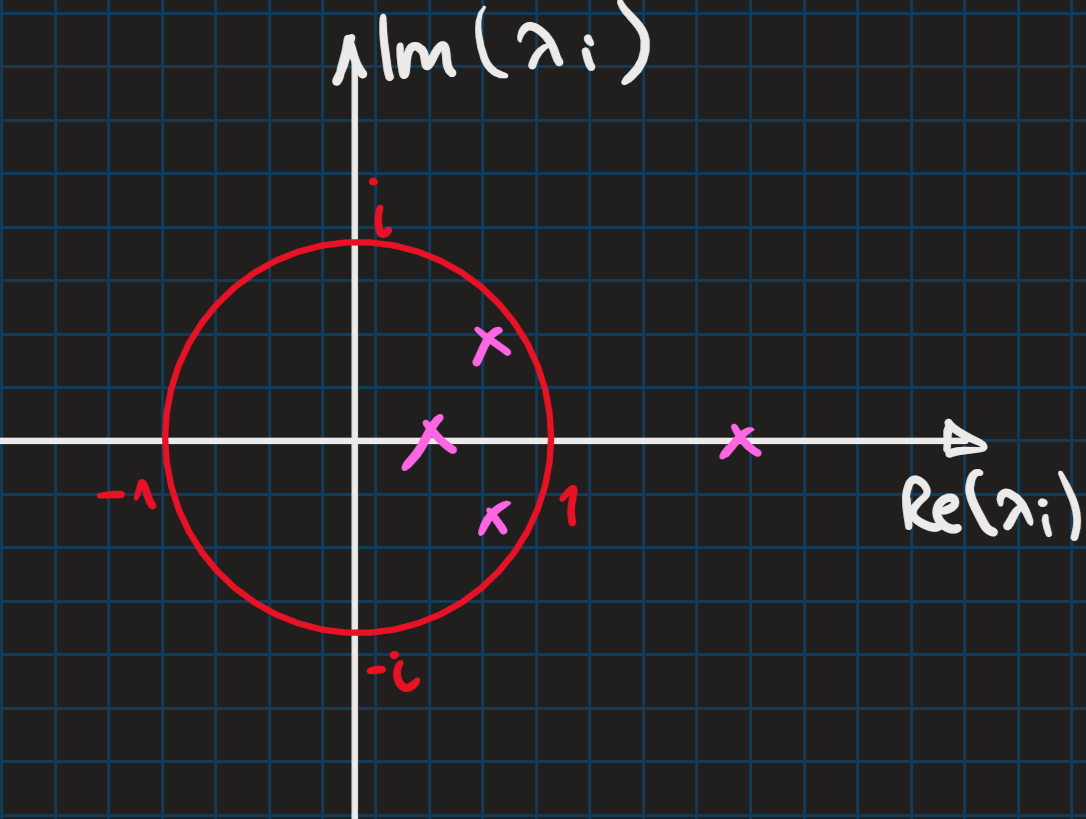 Im(λi)
i
-1
1
Re(λi)
-i